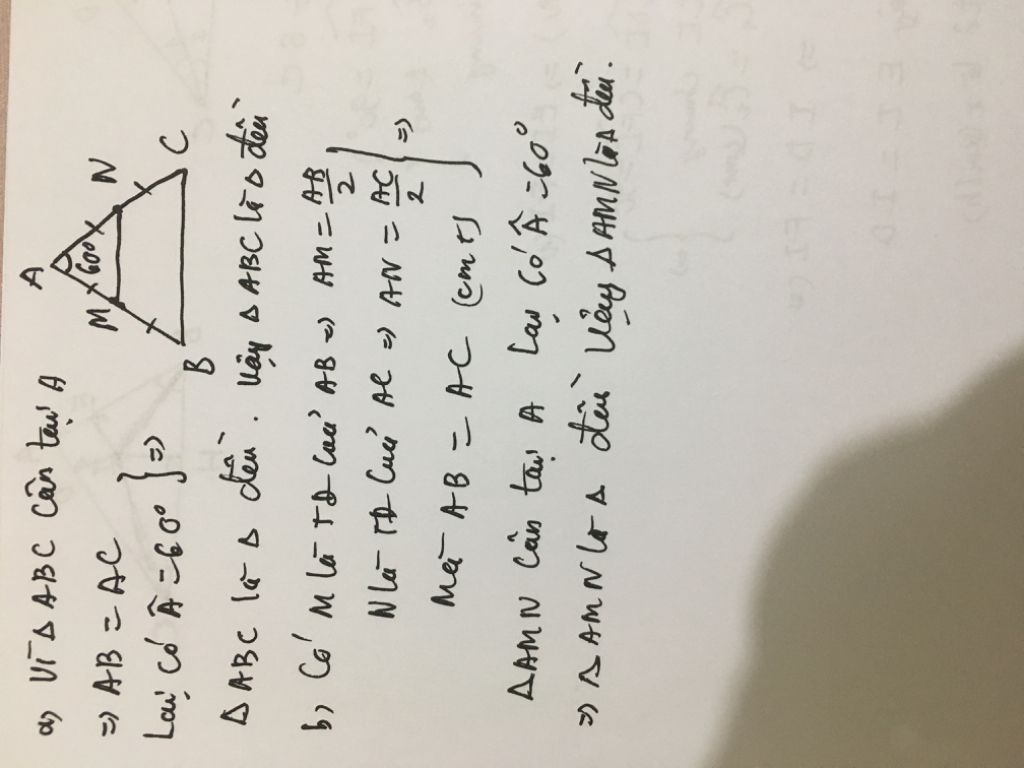 a, Vì Δ ABC cân tại A
=> AB = AC
Lại có Â = 60° } =>
Δ ABC là Δ đều. Vậy Δ ABC là Δ đều
b, Có M là TĐ của AB => AM = AB/2
N là TĐ của AC => AN = AC/2 } =>
Mà AB = AC (cmt)
ΔAMN cân tại A lại có Â = 60°
=> Δ AMN là Δ đều Vậy Δ AMN là Δ đều.
A
M 60° N
B C